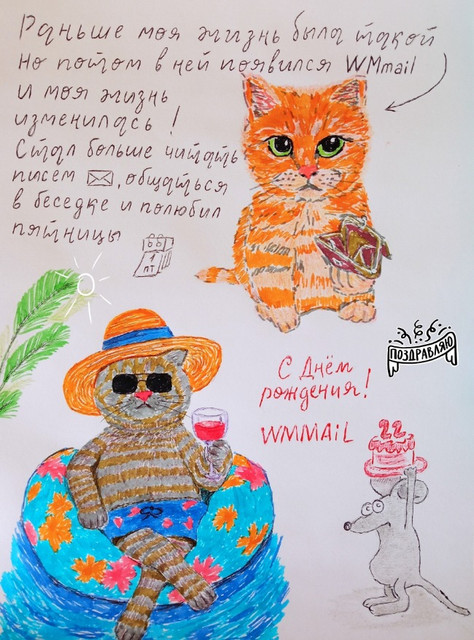 Раньше моя жизнь была такой
Но потом в ней появился WMmail
и моя жизнь
изменилась!
Стал больше читать
писем ✉, общаться
в беседке и полюбил
пятницы
1
ПТ
ПОЗДРАВЛЯЮ
С Днём
рождения!
WMMAiL
22